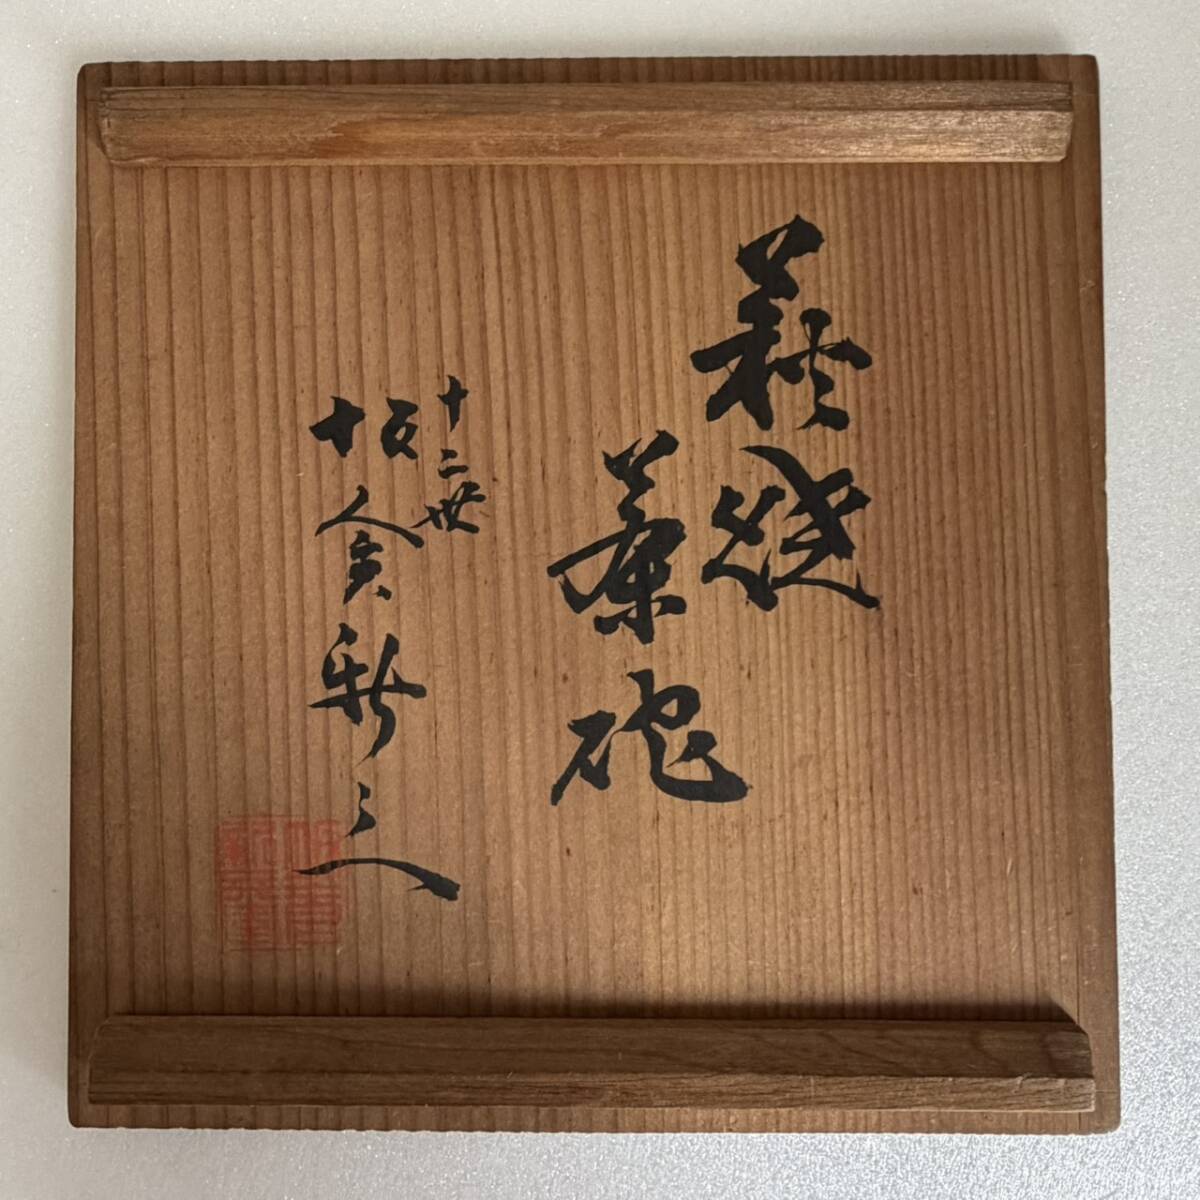 萩焼
茶碗
十二世
坂倉新兵衛